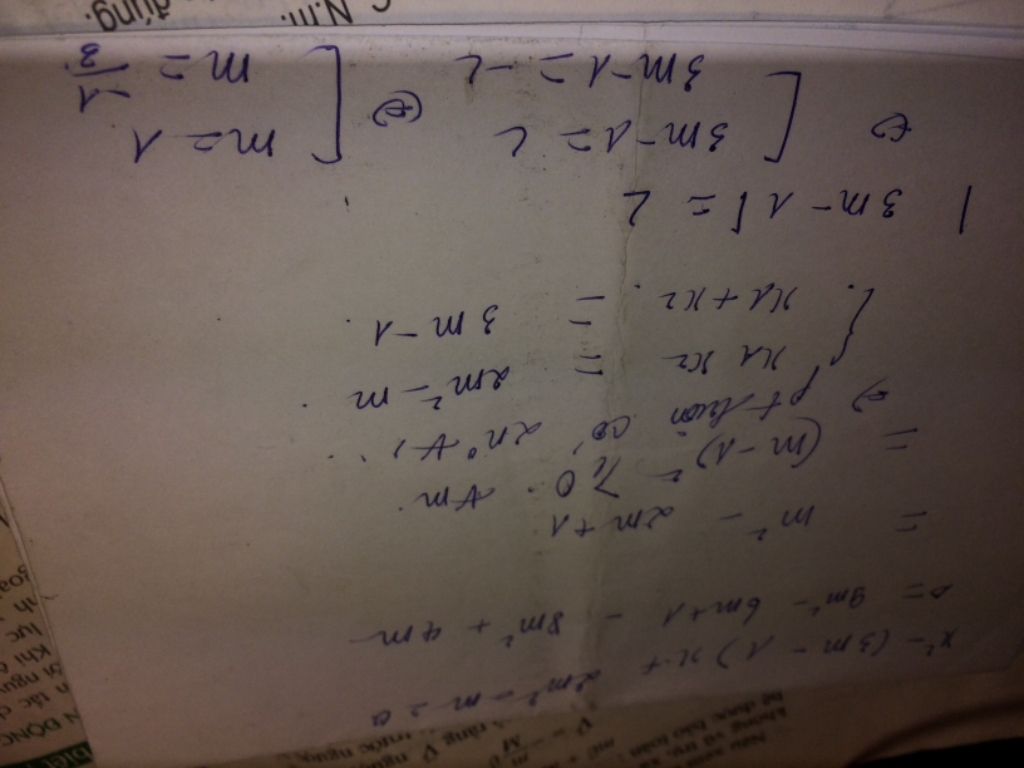 x² - (3m - 1)x + 2m² - m = 0
Δ = 9m² - 6m + 1 - 8m² + 4m
= m² - 2m + 1
= (m - 1)² ≥ 0 ∀m
=> pt luôn có 2n° ∀
{ x1 x2 = 2m² - m
x1 + x2 = 3m - 1
|3m - 1| = 2
⇔ [ 3m - 1 = 2 ⇔ [ m = 1
3m - 1 = -2 m = -1/3
N.m.
đúng.